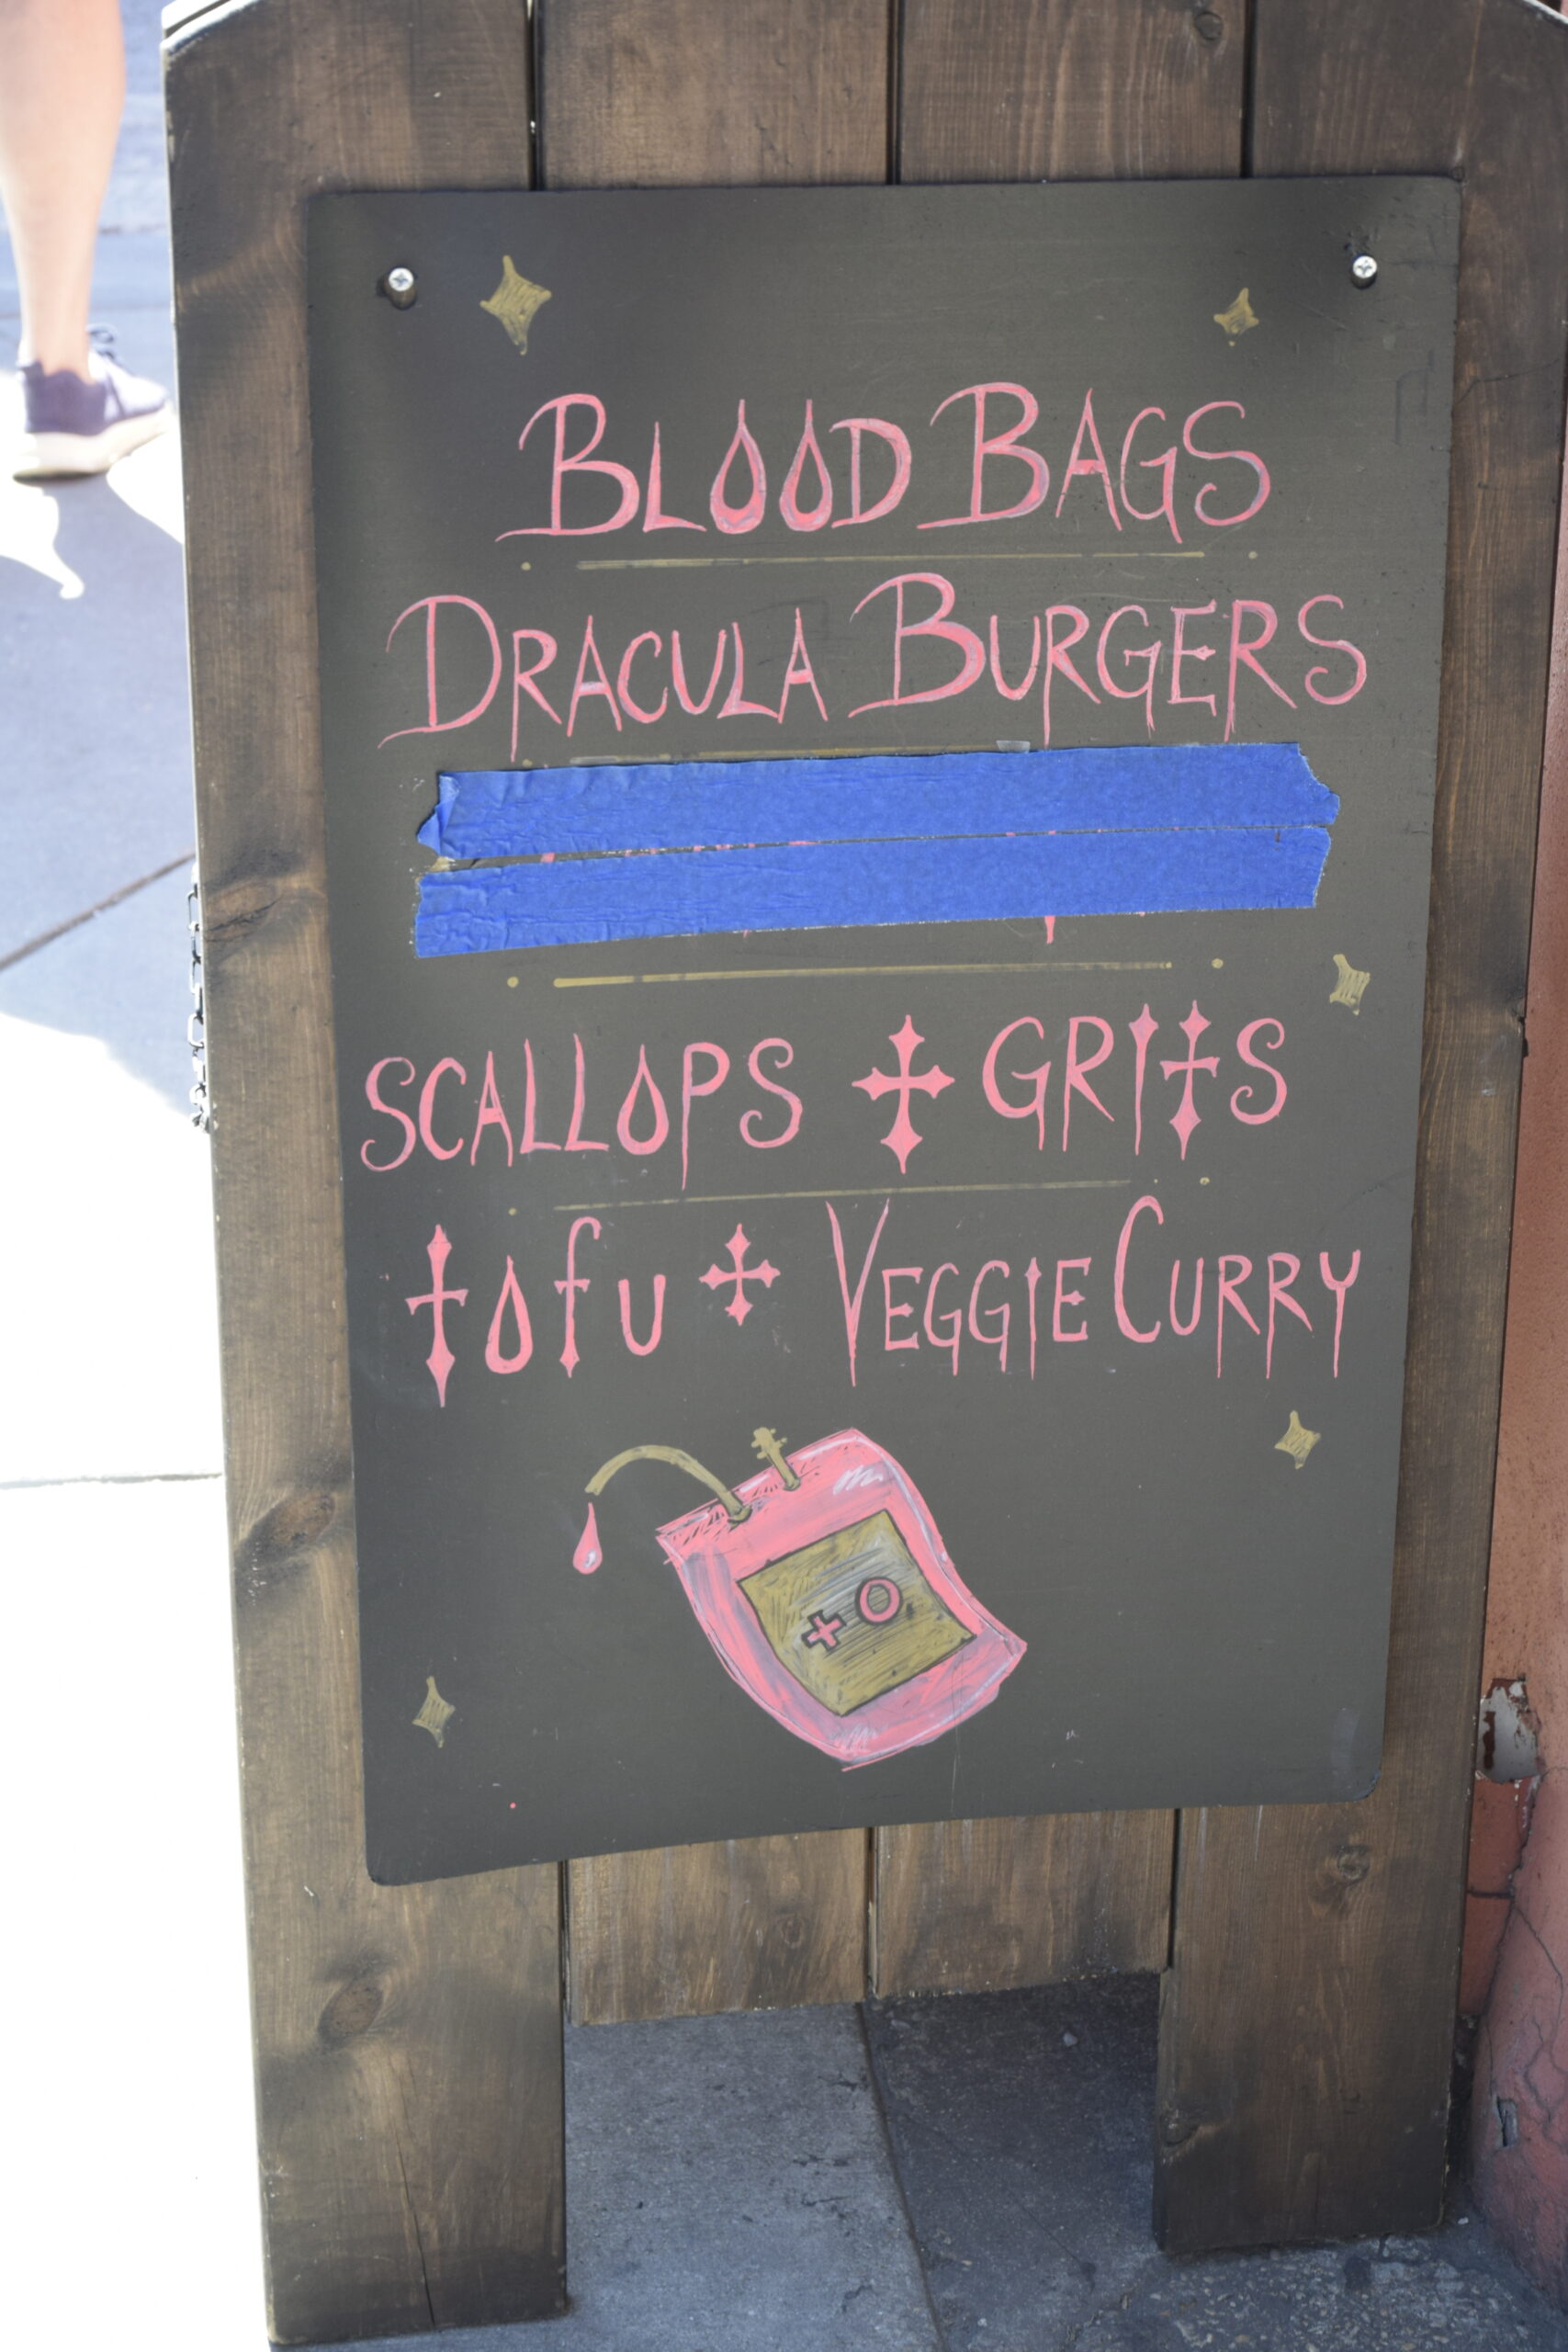 BLOOD BAGS
DRACULA BURGERS
SCALLOPS + GRITS
tofu + VEGGIE CURRY
+O